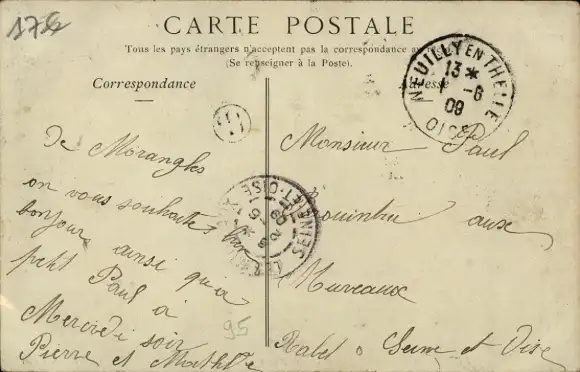 1752
CARTE POSTALE
Tous les pays étrangers n'acceptent pas la correspondance au
(Se renseigner à la Poste).
Correspondance
Adresse
NEUILLY EN THELLE
13 *
1 -6
09
OISE
De Morangles
on vous souhaites
bonjour ainsi qu'a
petit Paul
a
Mercredi soir
Pierre et Mathilde
95
SEINE-ET-OISE
Monsieur Paul
aux
Mureaux
Seine et Oise